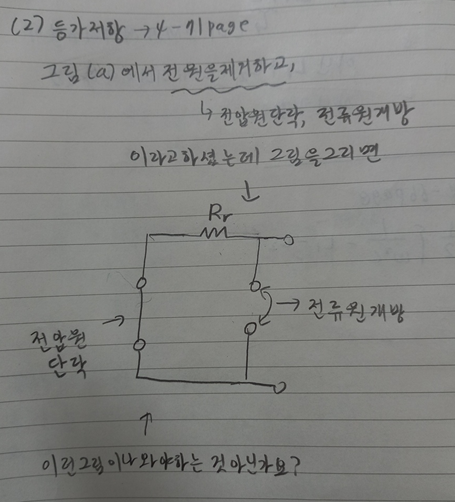 (2) 등가저항 → 4-71page
그림 (a)에서 전원을제거하고,
↳ 전압원단락, 전류원개방
이라고하셨는데 그림을그리면
↓
Rr
→ 전류원개방
전압원 →
단락
↑
이런그림이나와야하는 것아닌가요?